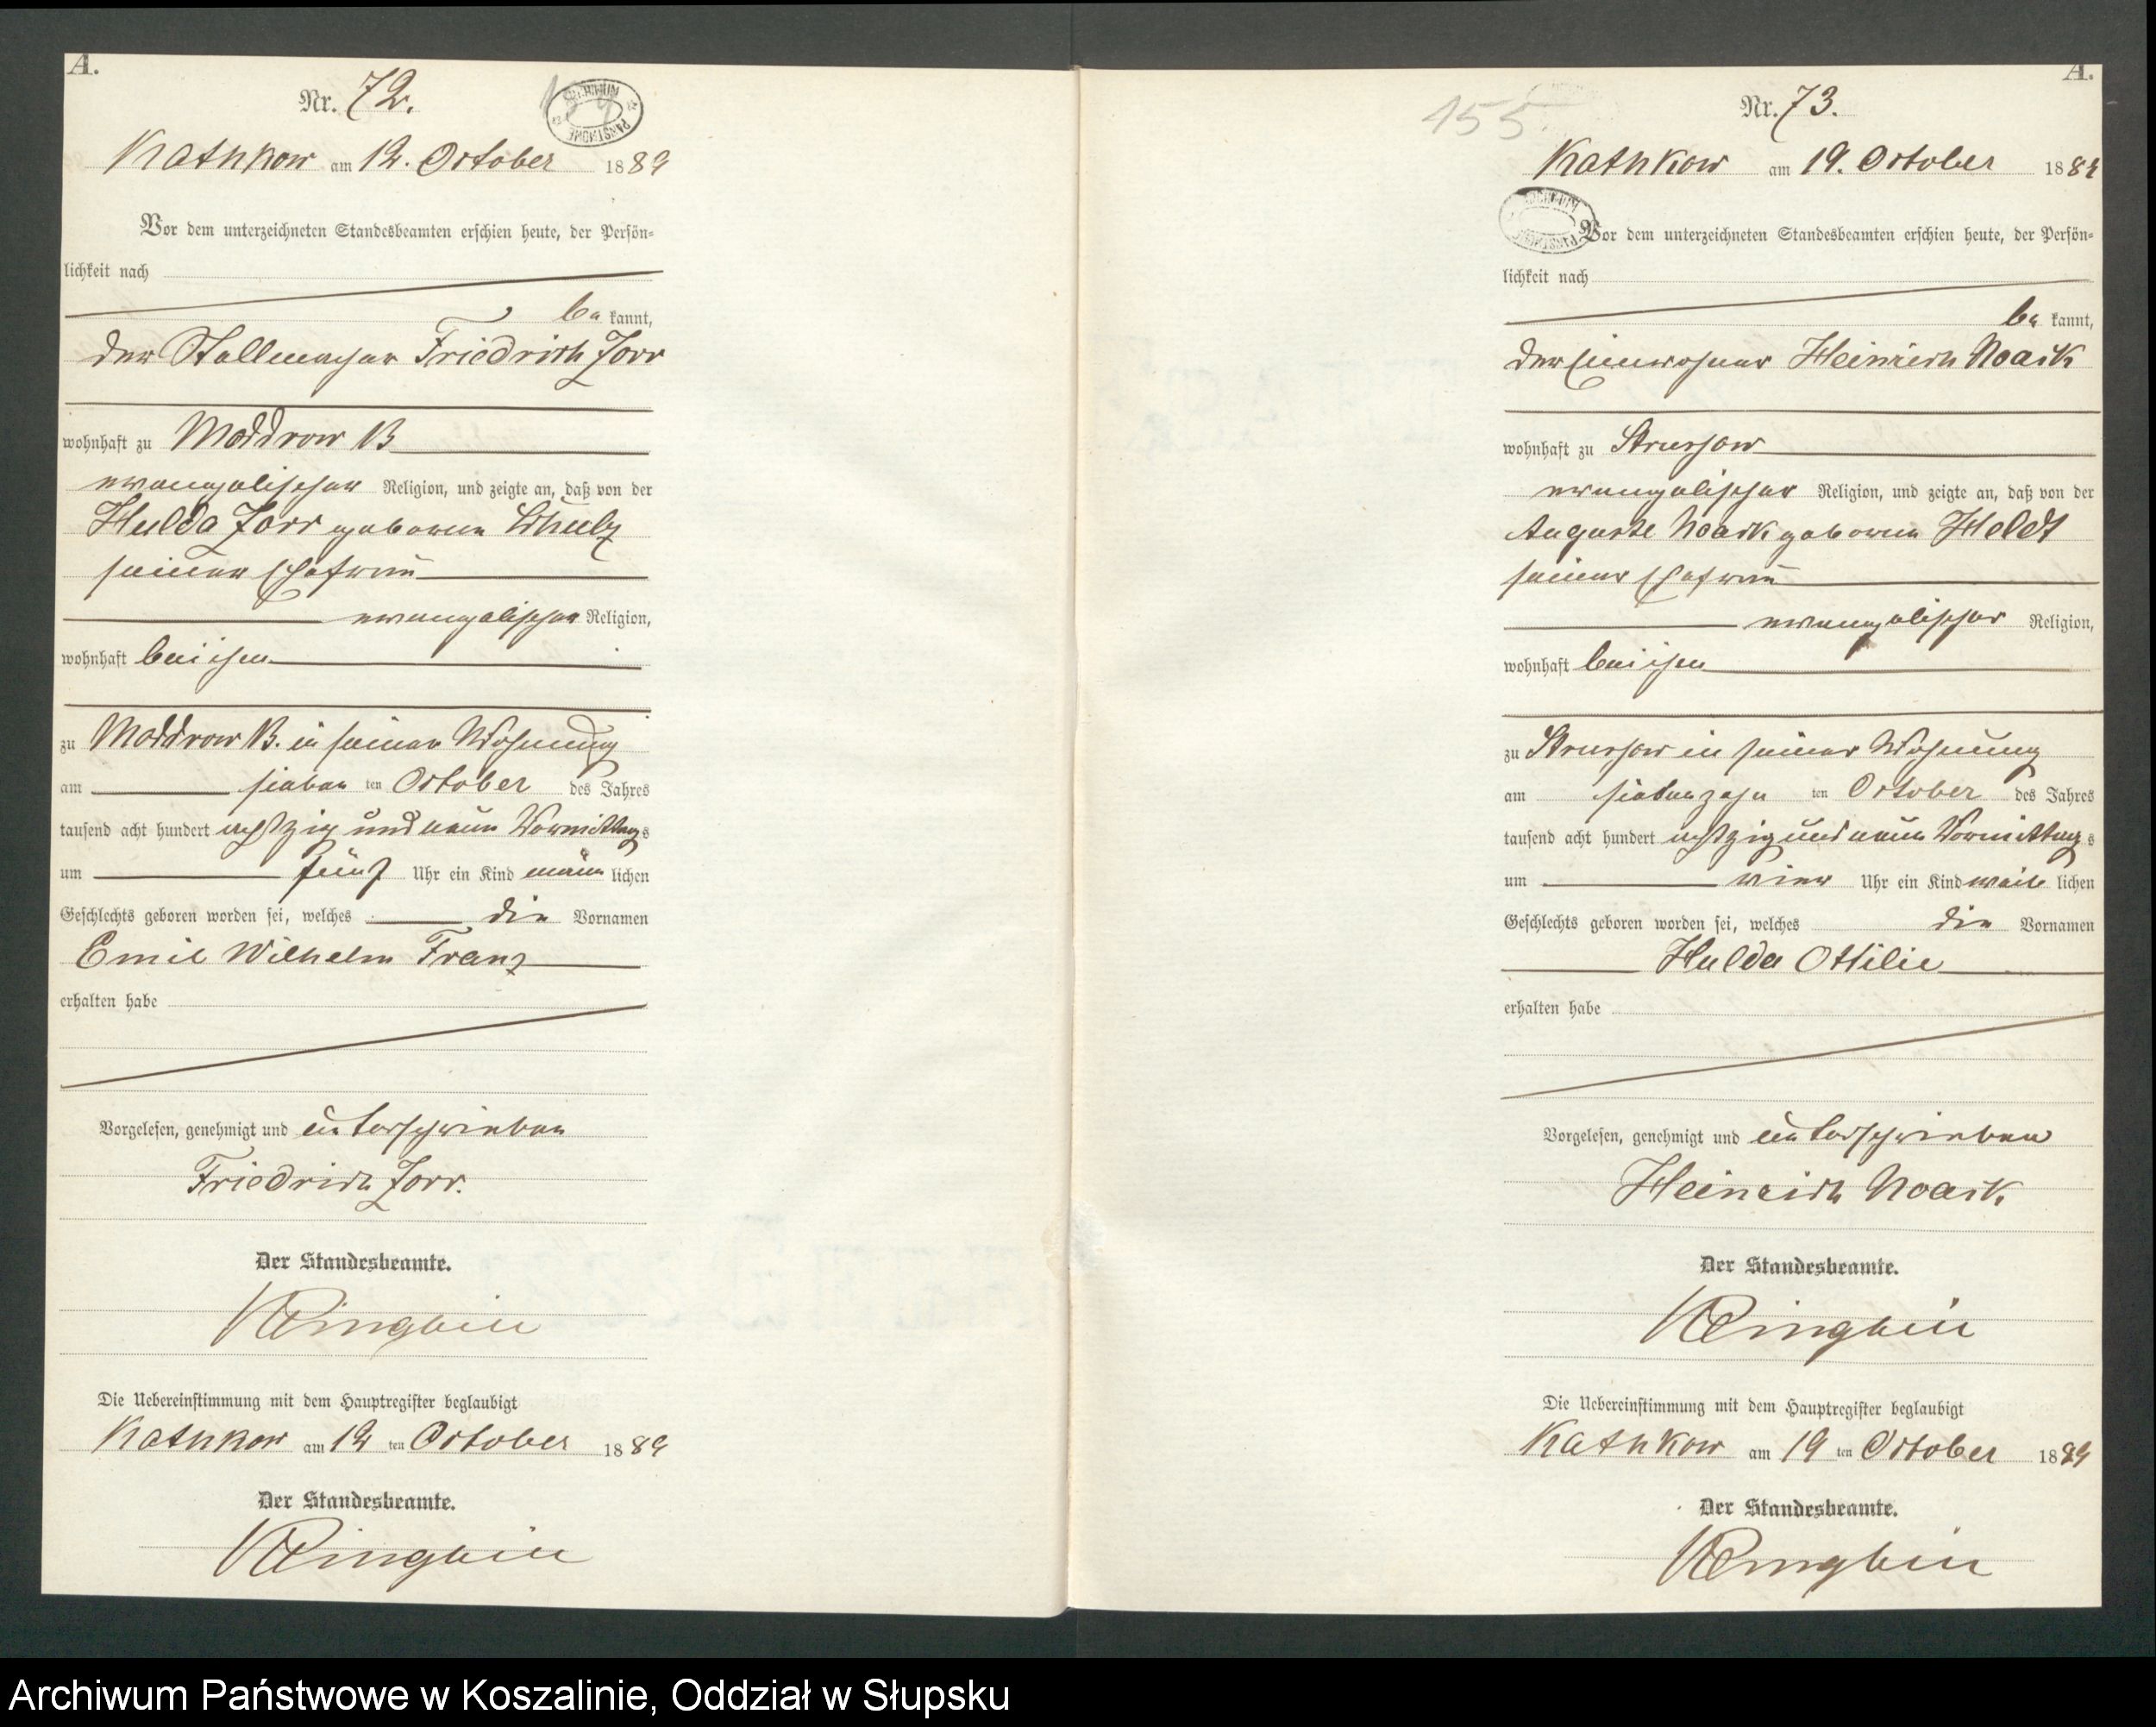 A.
Nr. 72.
Kathkow am 12. October 1889
Vor dem unterzeichneten Standesbeamten erschien heute, der Persön-
lichkeit nach
be kannt,
der Stellmacher Friedrich Zorr
wohnhaft zu Moddrow B
evangelischer Religion, und zeigte an, daß von der
Hulda Zorr geborene Schulz
seiner Ehefrau
evangelischer Religion,
wohnhaft bei ihm
zu Moddrow B. in seiner Wohnung
am sieben ten October des Jahres
tausend acht hundert achtzig und neun Vormittags
um fünf Uhr ein Kind männ lichen
Geschlechts geboren worden sei, welches die Vornamen
Emil Wilhelm Franz
erhalten habe
Vorgelesen, genehmigt und unterschrieben
Friedrich Zorr.
Der Standesbeamte.
Die Uebereinstimmung mit dem Hauptregister beglaubigt
Kathkow am 12 ten October 1889
Der Standesbeamte.
A.
155
Nr. 73.
Kathkow am 19. October 1889
Vor dem unterzeichneten Standesbeamten erschien heute, der Persön-
lichkeit nach
be kannt,
der Einwohner Heinrich Noack
wohnhaft zu Strussow
evangelischer Religion, und zeigte an, daß von der
Auguste Noack geborene Heldt
seiner Ehefrau
evangelischer Religion,
wohnhaft bei ihm
zu Strussow in seiner Wohnung
am siebenzehn ten October des Jahres
tausend acht hundert achtzig und neun Vormittags
um vier Uhr ein Kind weib lichen
Geschlechts geboren worden sei, welches die Vornamen
Hulda Ottilie
erhalten habe
Vorgelesen, genehmigt und unterschrieben
Heinrich Noack
Der Standesbeamte.
Die Uebereinstimmung mit dem Hauptregister beglaubigt
Kathkow am 19 ten October 1889
Der Standesbeamte.
Archiwum Państwowe w Koszalinie, Oddział w Słupsku